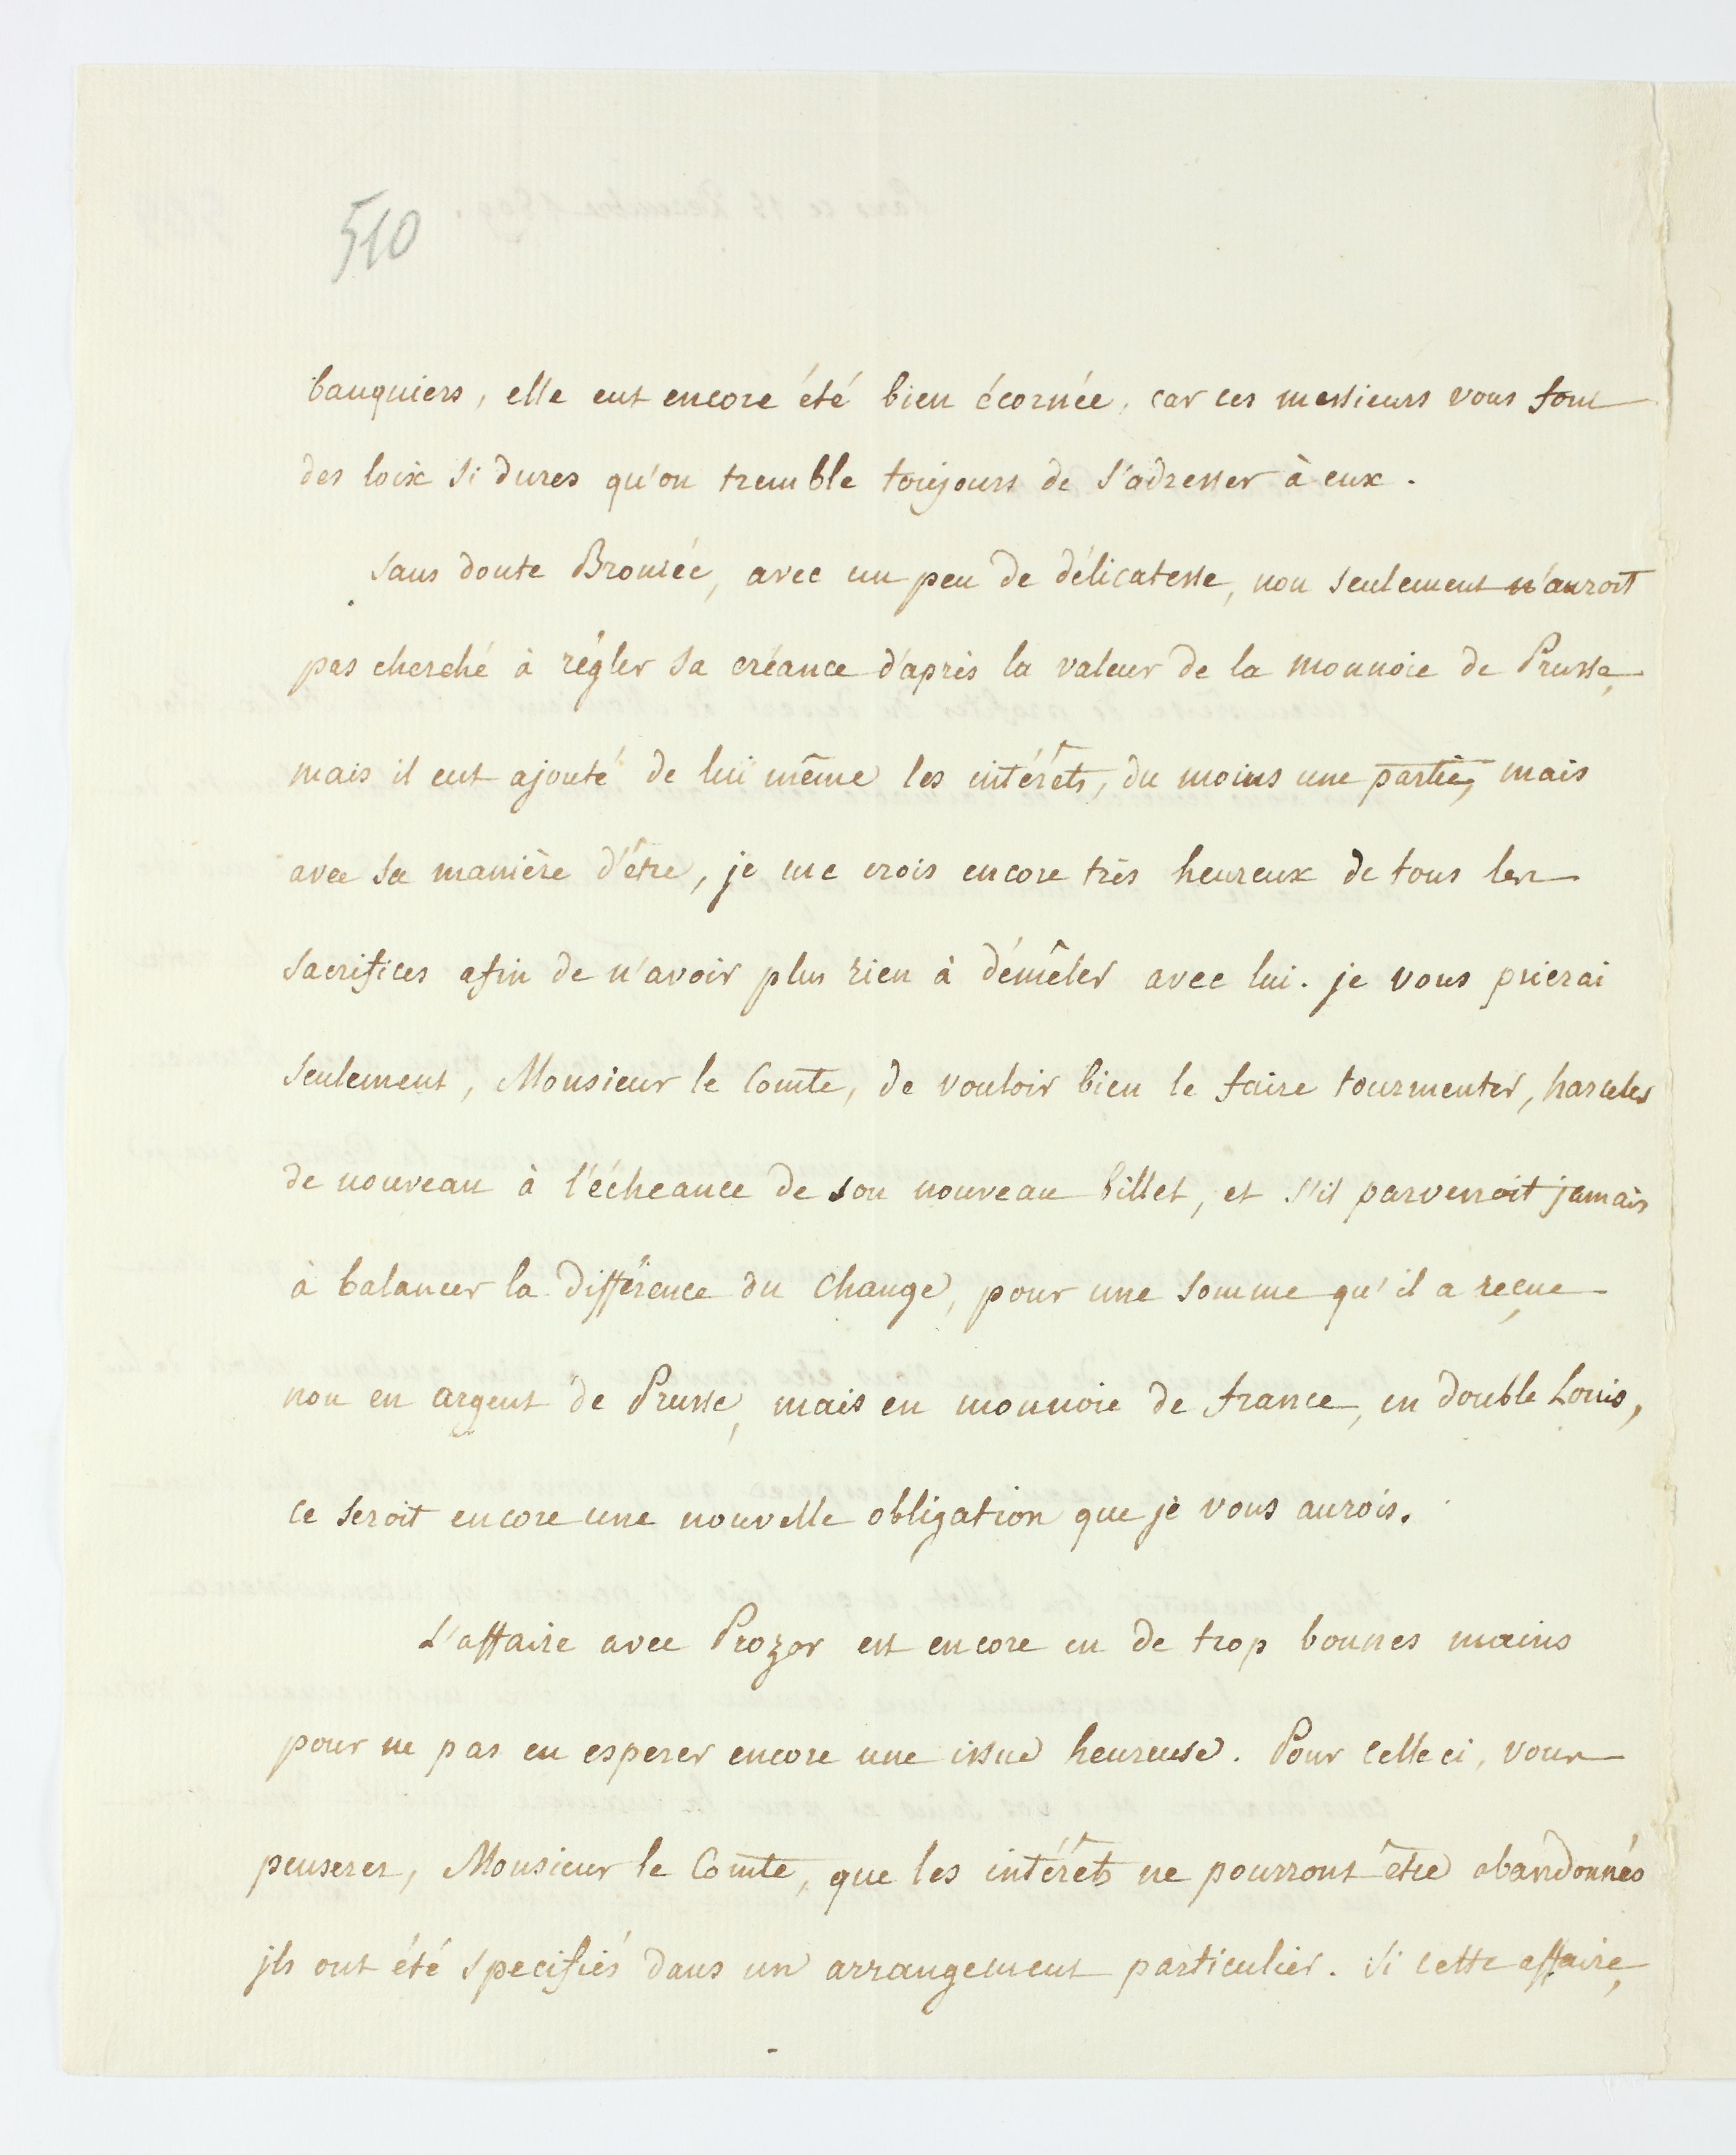 510
banquiers, elle eut encore été bien écornée, car ces messieurs vous font
des loix si dures qu'on tremble toujours de s'adresser à eux.
sans doute Brousée, avec un peu de délicatesse, non seulement n'auroit
pas cherché à régler sa créance d'après la valeur de la monnoie de Prusse,
mais il eut ajouté de lui même les intérêts, du moins une partie, mais
avec sa manière d'être, je me crois encore très heureux de tous les
sacrifices afin de n'avoir plus rien à démêler avec lui. je vous prierai
seulement, Monsieur le Comte, de vouloir bien le faire tourmenter, harceler
de nouveau à l'écheance de son nouveau billet, et s'il parvenoit jamais
à balancer la différence du change, pour une somme qu'il a reçue
non en argent de Prusse, mais en monnoie de france, en double Louis,
ce seroit encore une nouvelle obligation que je vous aurois.
L'affaire avec Prozor est encore en de trop bonnes mains
pour ne pas en esperer encore une issue heureuse. Pour celle ci, vous
penserez, Monsieur le Comte, que les intérêts ne pourront être abandonnés
ils ont été specifiés dans un arrangement particulier. si cette affaire,